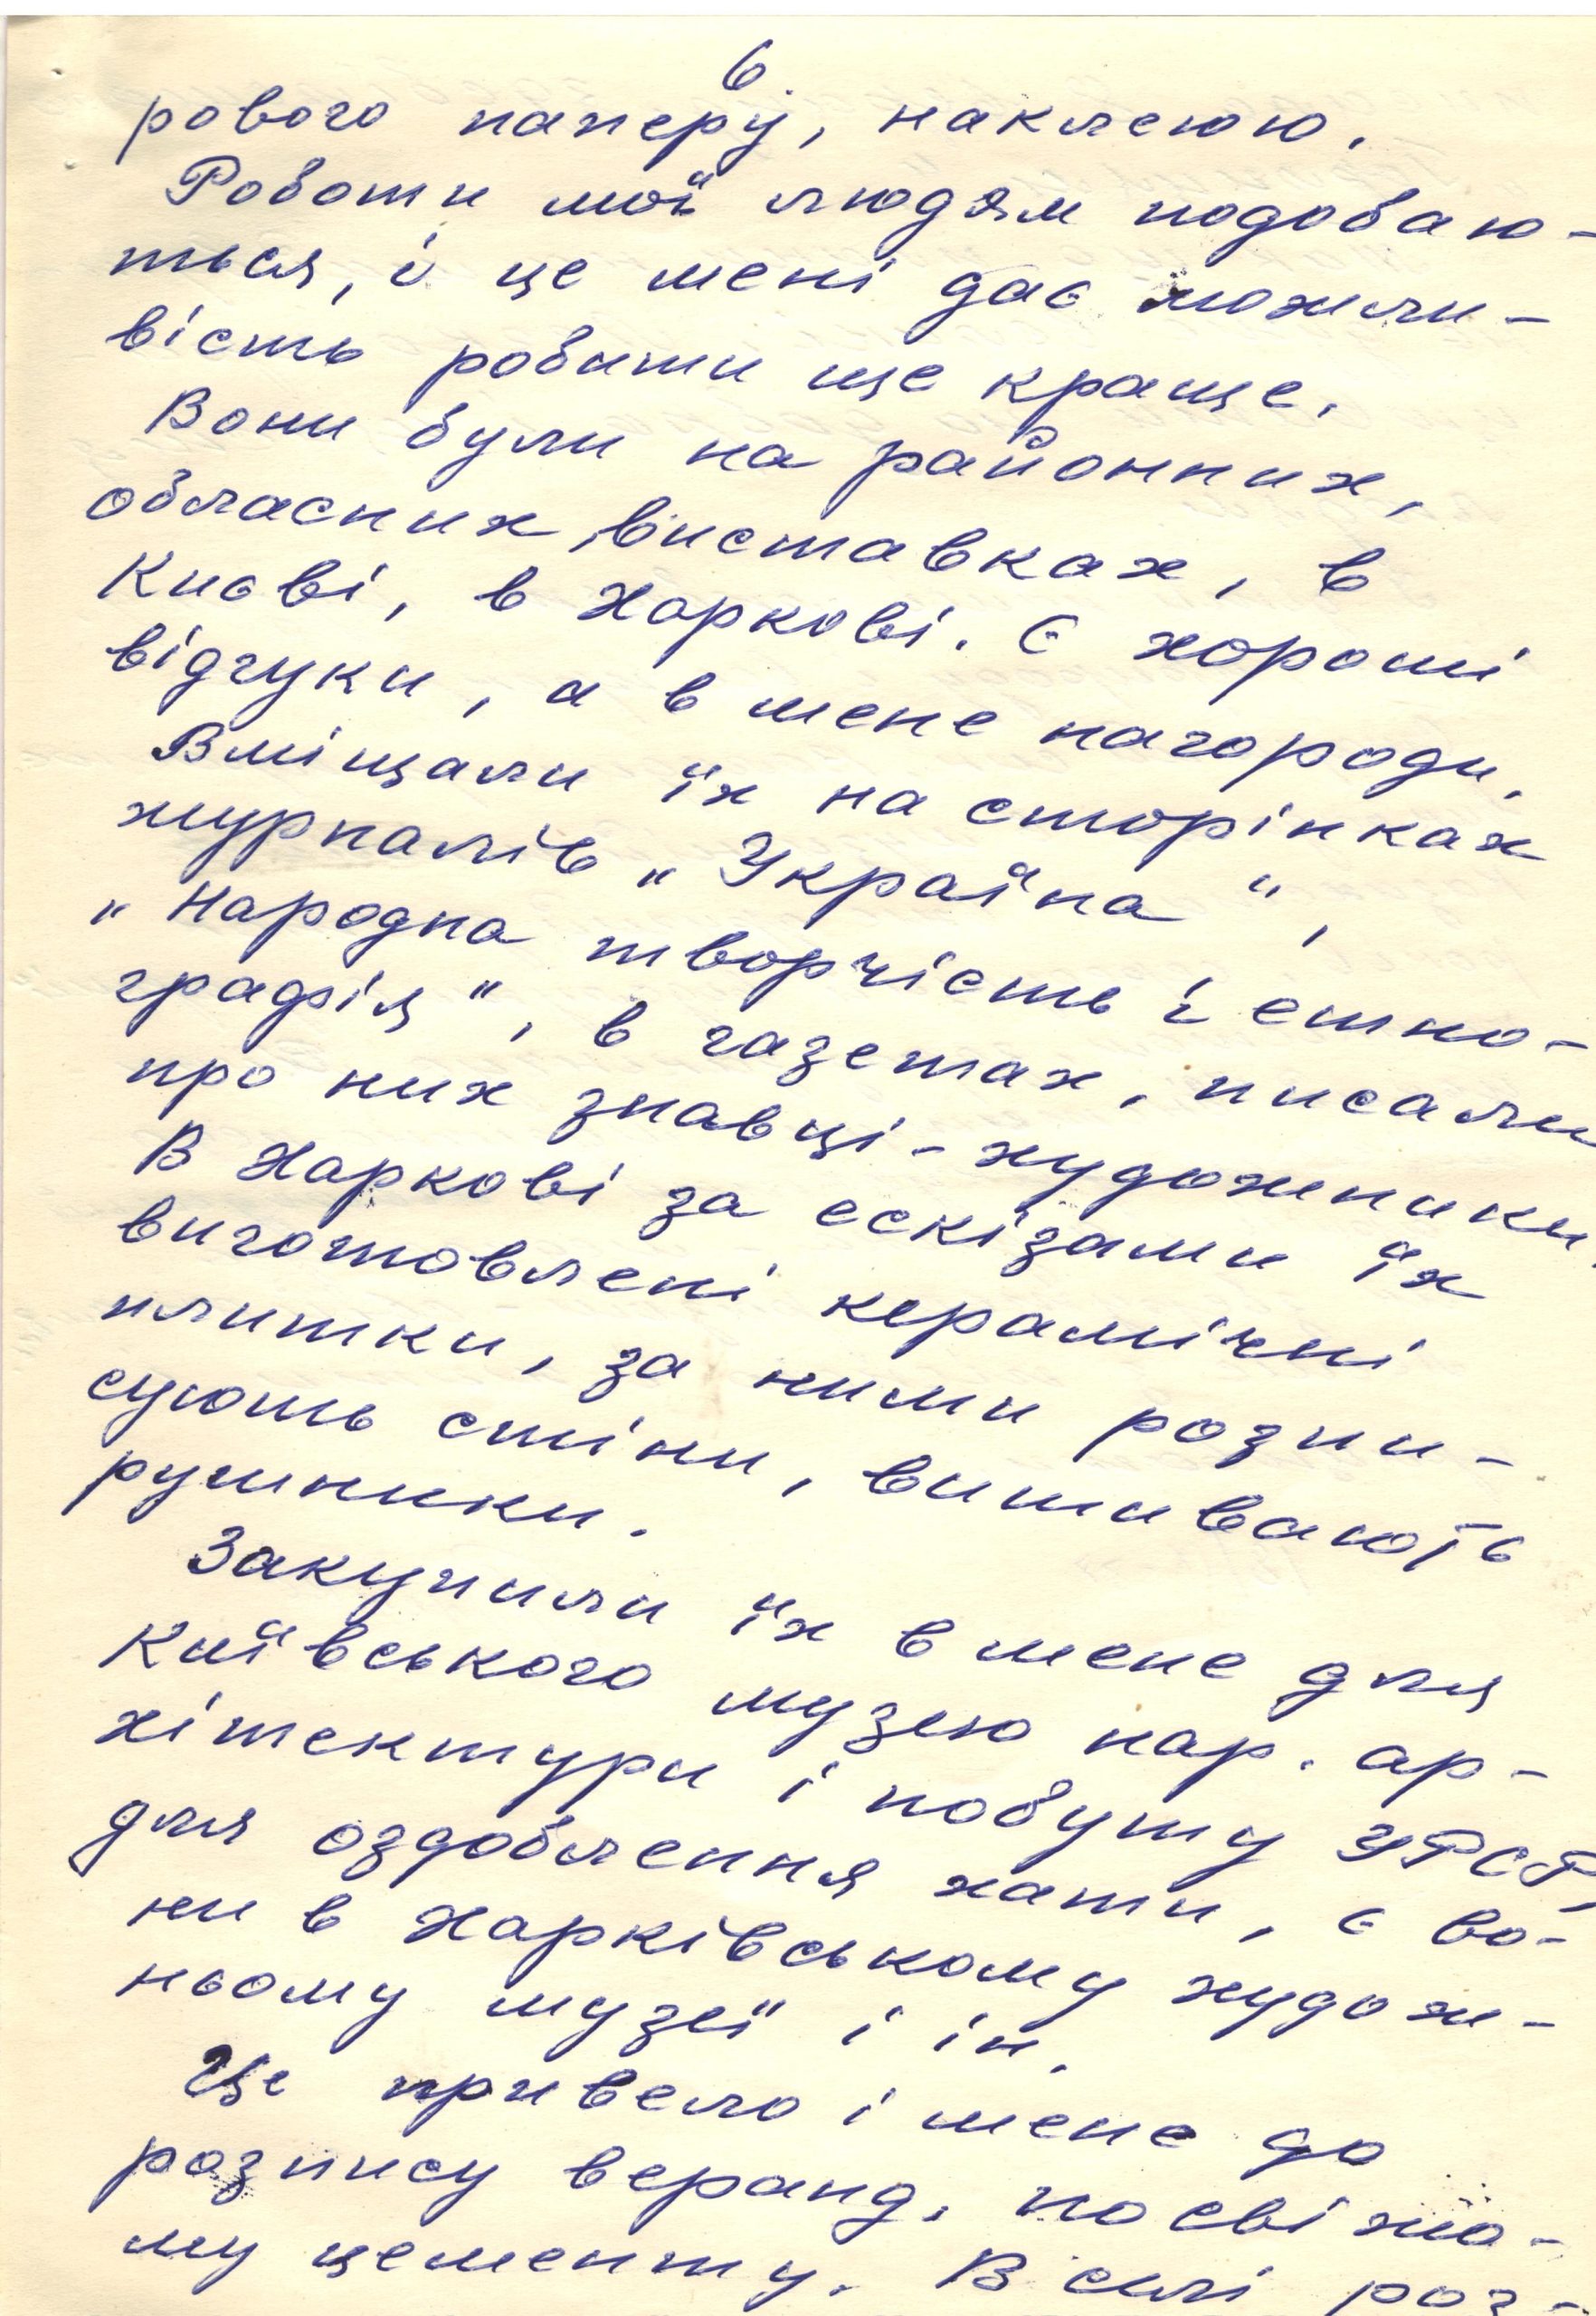 6
рового паперу, наклеюю.
Роботи мої людям подобаю-
ться, і це мені дає можли-
вість робити ще краще.
Вони були на районних,
обласних виставках, в
Києві, в Харкові. Є хороші
відгуки, а в мене нагороди.
Вміщали їх на сторінках
журналів „Україна“,
„Народна творчість і етно-
графія“, в газетах, писали
про них знавці-художники.
В Харкові за ескізами їх
виготовлені керамічні
плитки, за ними розпи-
сують стіни, вишивають
рушники.
Закупили їх в мене для
Київського музею нар. ар-
хітектури і побуту УРСР,
для оздоблення хати, є во-
ни в Харківському худож-
ньому музеї і ін.
Це привело і мене до
розпису веранд, по свіжо-
му цементу. В селі роз-